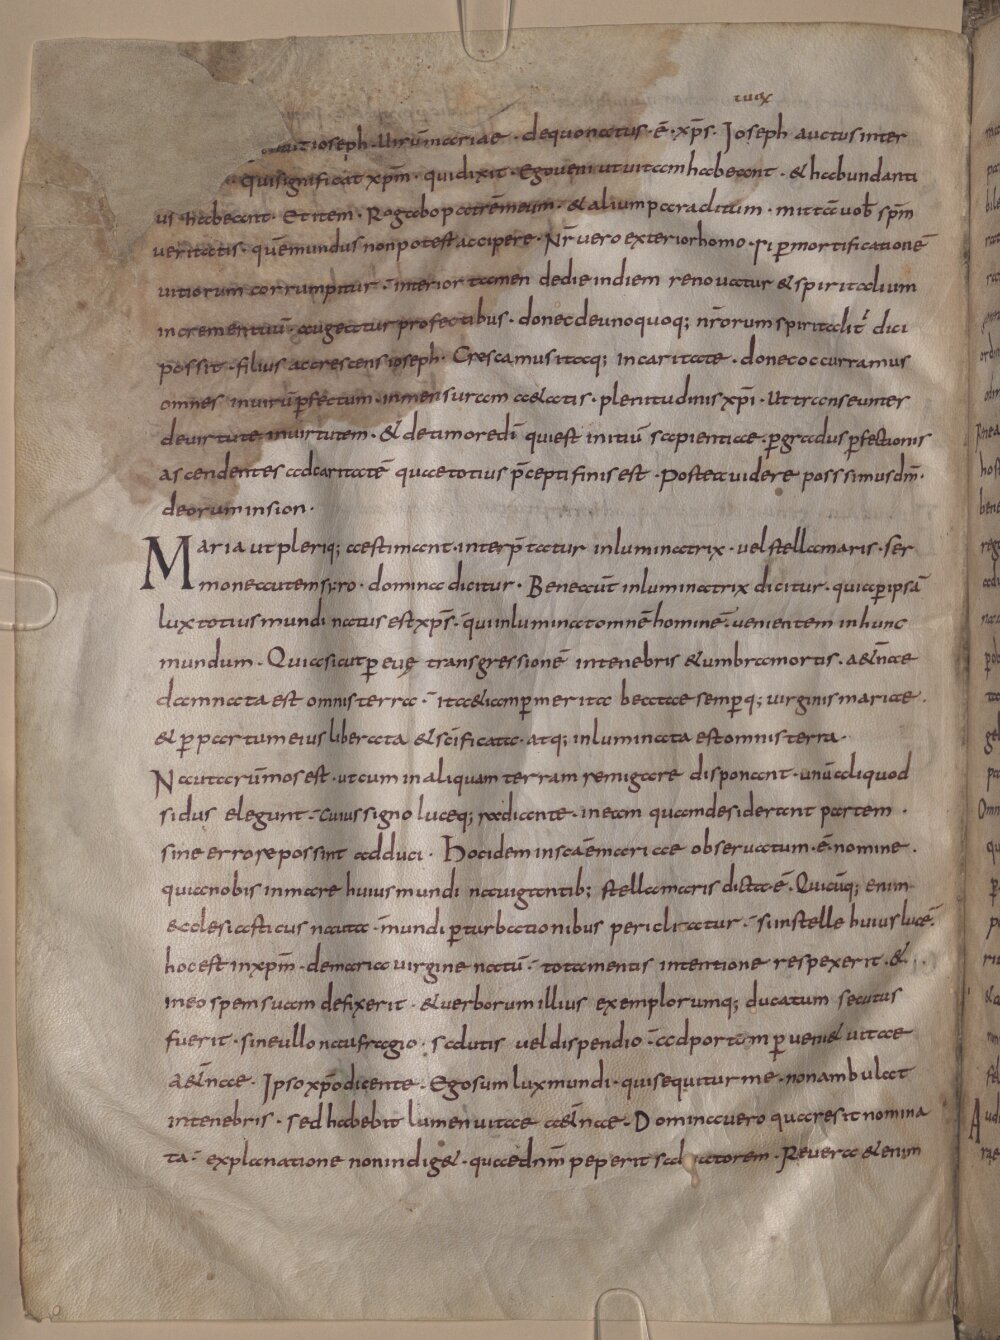 tux
ioseph · uirū mariae · de quo natus · ē · xp̄s · Ioseph auctus inter
· qui significat xp̄m · qui dixit · Ego ueni ut uitam habeant · & habundanti
us habeant · Et item · Rogabo patrē meum · & alium paraclitum · mittā uob̄ sp̄m
ueritatis · quē mundus non potest accipere · Nr̄ uero exterior homo · p mortificationē
uitiorum corrumpitur · interior tamen de die in diem renouatur & spiritalium
incrementum · augeatur profectibus · donec de unoquoq; nr̄orum spiritalit̄ dici
possit · filius accrescens ioseph · Crescamus itaq; in caritate · donec occurramus
omnes in uirū pfectum · in mensuram aetatis · plenitudinis xp̄i · Ut transeuntes
de uirtute in uirtutem · & de timore dī qui est initiū sapientiae · p gradus pfectionis
ascendentes ad caritatē quae totius p̄cepti finis est · Postea uidere possimus dm̄ ·
deorum in sion ·
Maria ut pleriq; aestimant · interp̄tatur inluminatrix · uel stella maris · ser
mone autem syro · domina dicitur · Bene aut̄ inluminatrix dicitur · quia p ipsā
lux totius mundi natus est xp̄s · qui inluminat omnē hominē · uenientem in hunc
mundum · Quia sicut p euę transgressionē in tenebris & umbra mortis · a&n̄ae
damnata est omnis terra · ita &iam p merita beatae semp q; uirginis mariae ·
& p partum eius liberata & scīficata · atq; inluminata est omnis terra ·
Nautarū mos est · ut cum in aliquam terram remigare disponant · unū aliquod
sidus elegunt · cuius signo luceq; radiante · in eam quam desiderant partem ·
sine errore possint adduci · Hoc idem in sc̄ae mariae obseruatum · ē · nomine ·
quia nobis in mare huius mundi nauigantib; stella maris dicta ē · Quicūq; enim
ecclesiasticus nauta · mundi pturbationibus periclitatur · si in stelle huius lucē ·
hoc est in xp̄m · de maria uirgine natū · tota mentis intentione respexerit · & ·
in eo spem suam defixerit · & uerborum illius exemplorumq; ducatum secutus
fuerit · sine ullo naufragio · salutis uel dispendio · ad portum p ueni& uitae
a&n̄ae · Ipso xp̄o dicente · Ego sum lux mundi · qui sequitur me · non ambulat
in tenebris · sed habebit lumen uitae a&n̄ae · Domina uero quare sit nomina
ta · explanatione non indig& · quae dn̄m peperit saluatorem · Reuera & enim